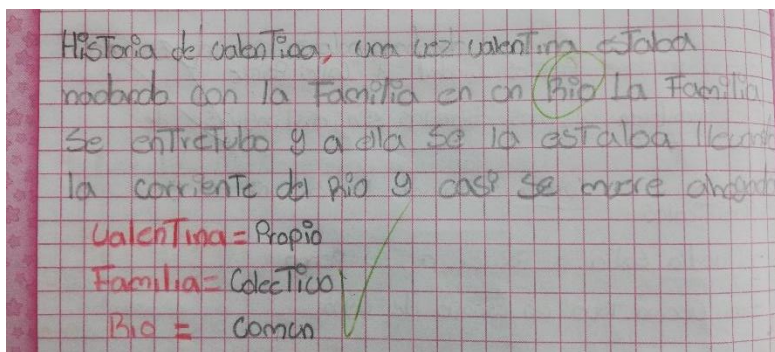 Historia de valentina, una vez valentina estaba
nadando con la Familia en un Rio La Familia
se entretubo y a ella se la estaba llevand
la corriente del Rio y casi se muere ahogad
Valentina = Propio
Familia = Colectivo
Rio = comun